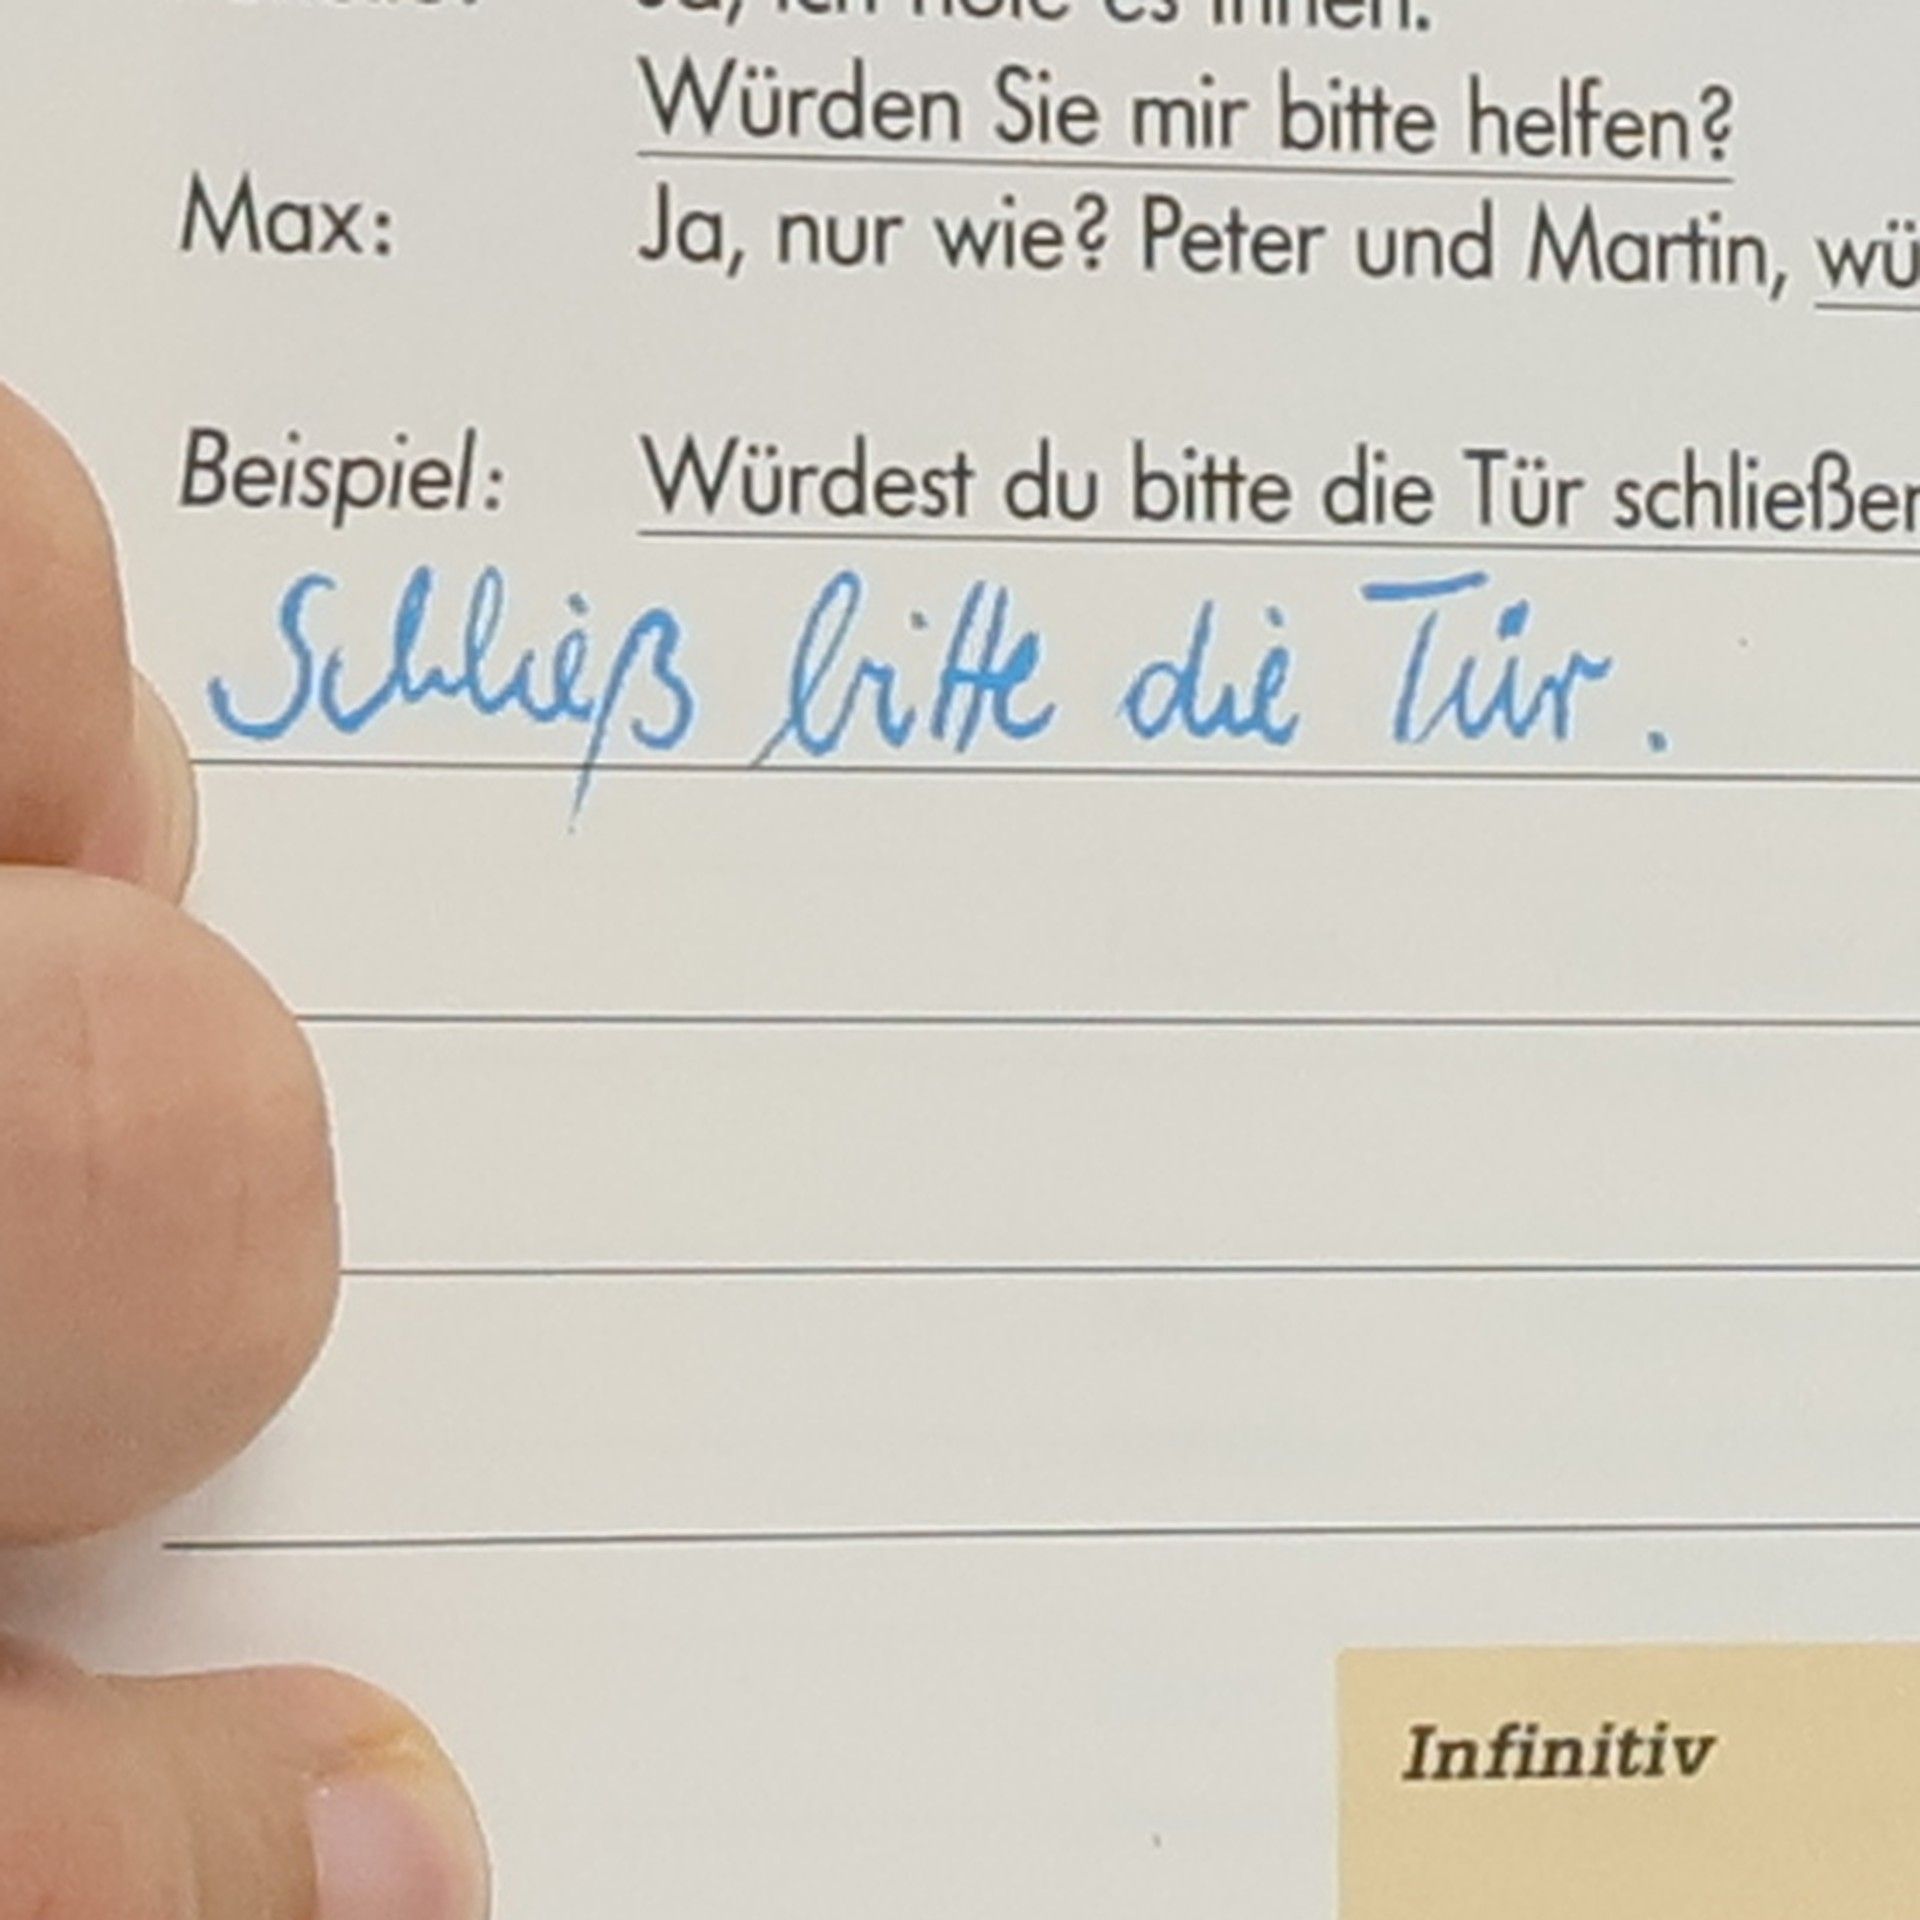 Ja, ich hole es Ihnen.
Würden Sie mir bitte helfen?
Max: Ja, nur wie? Peter und Martin, wü
Beispiel: Würdest du bitte die Tür schließen
Schließ bitte die Tür.
Infinitiv